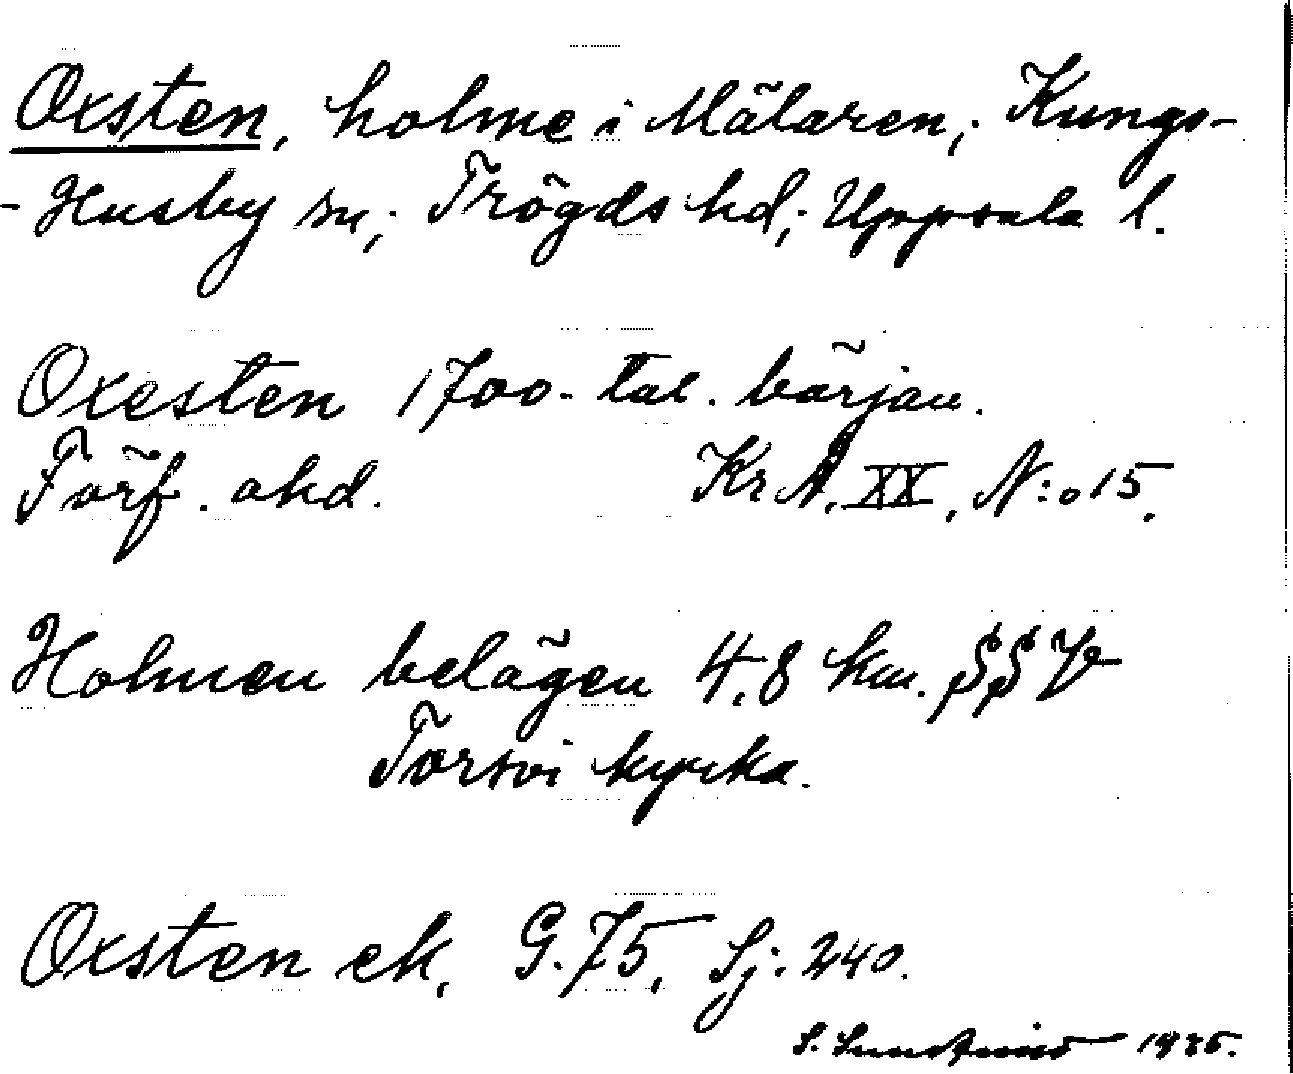 Oxsten, holme i Mälaren; Kungs-
-Husby sn; Trögds hd; Uppsala l.
Oxesten 1700-tal. början.
Förf. okd. KrA, XX, N:o 15.
Holmen belägen 4,8 km. SSV
Torsvi kyrka.
Oxsten ek, G. 75, Sj: 240.
S. 1935.